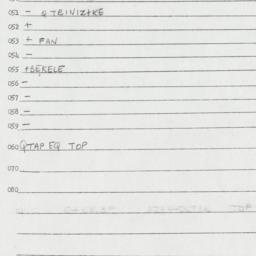 051 - QTRINIZ+KE
052 +
053 + FAN
054 -
055 +BEKELE
056 -
057 -
058 -
059 -
060 QTAP EQ TOP
070
080